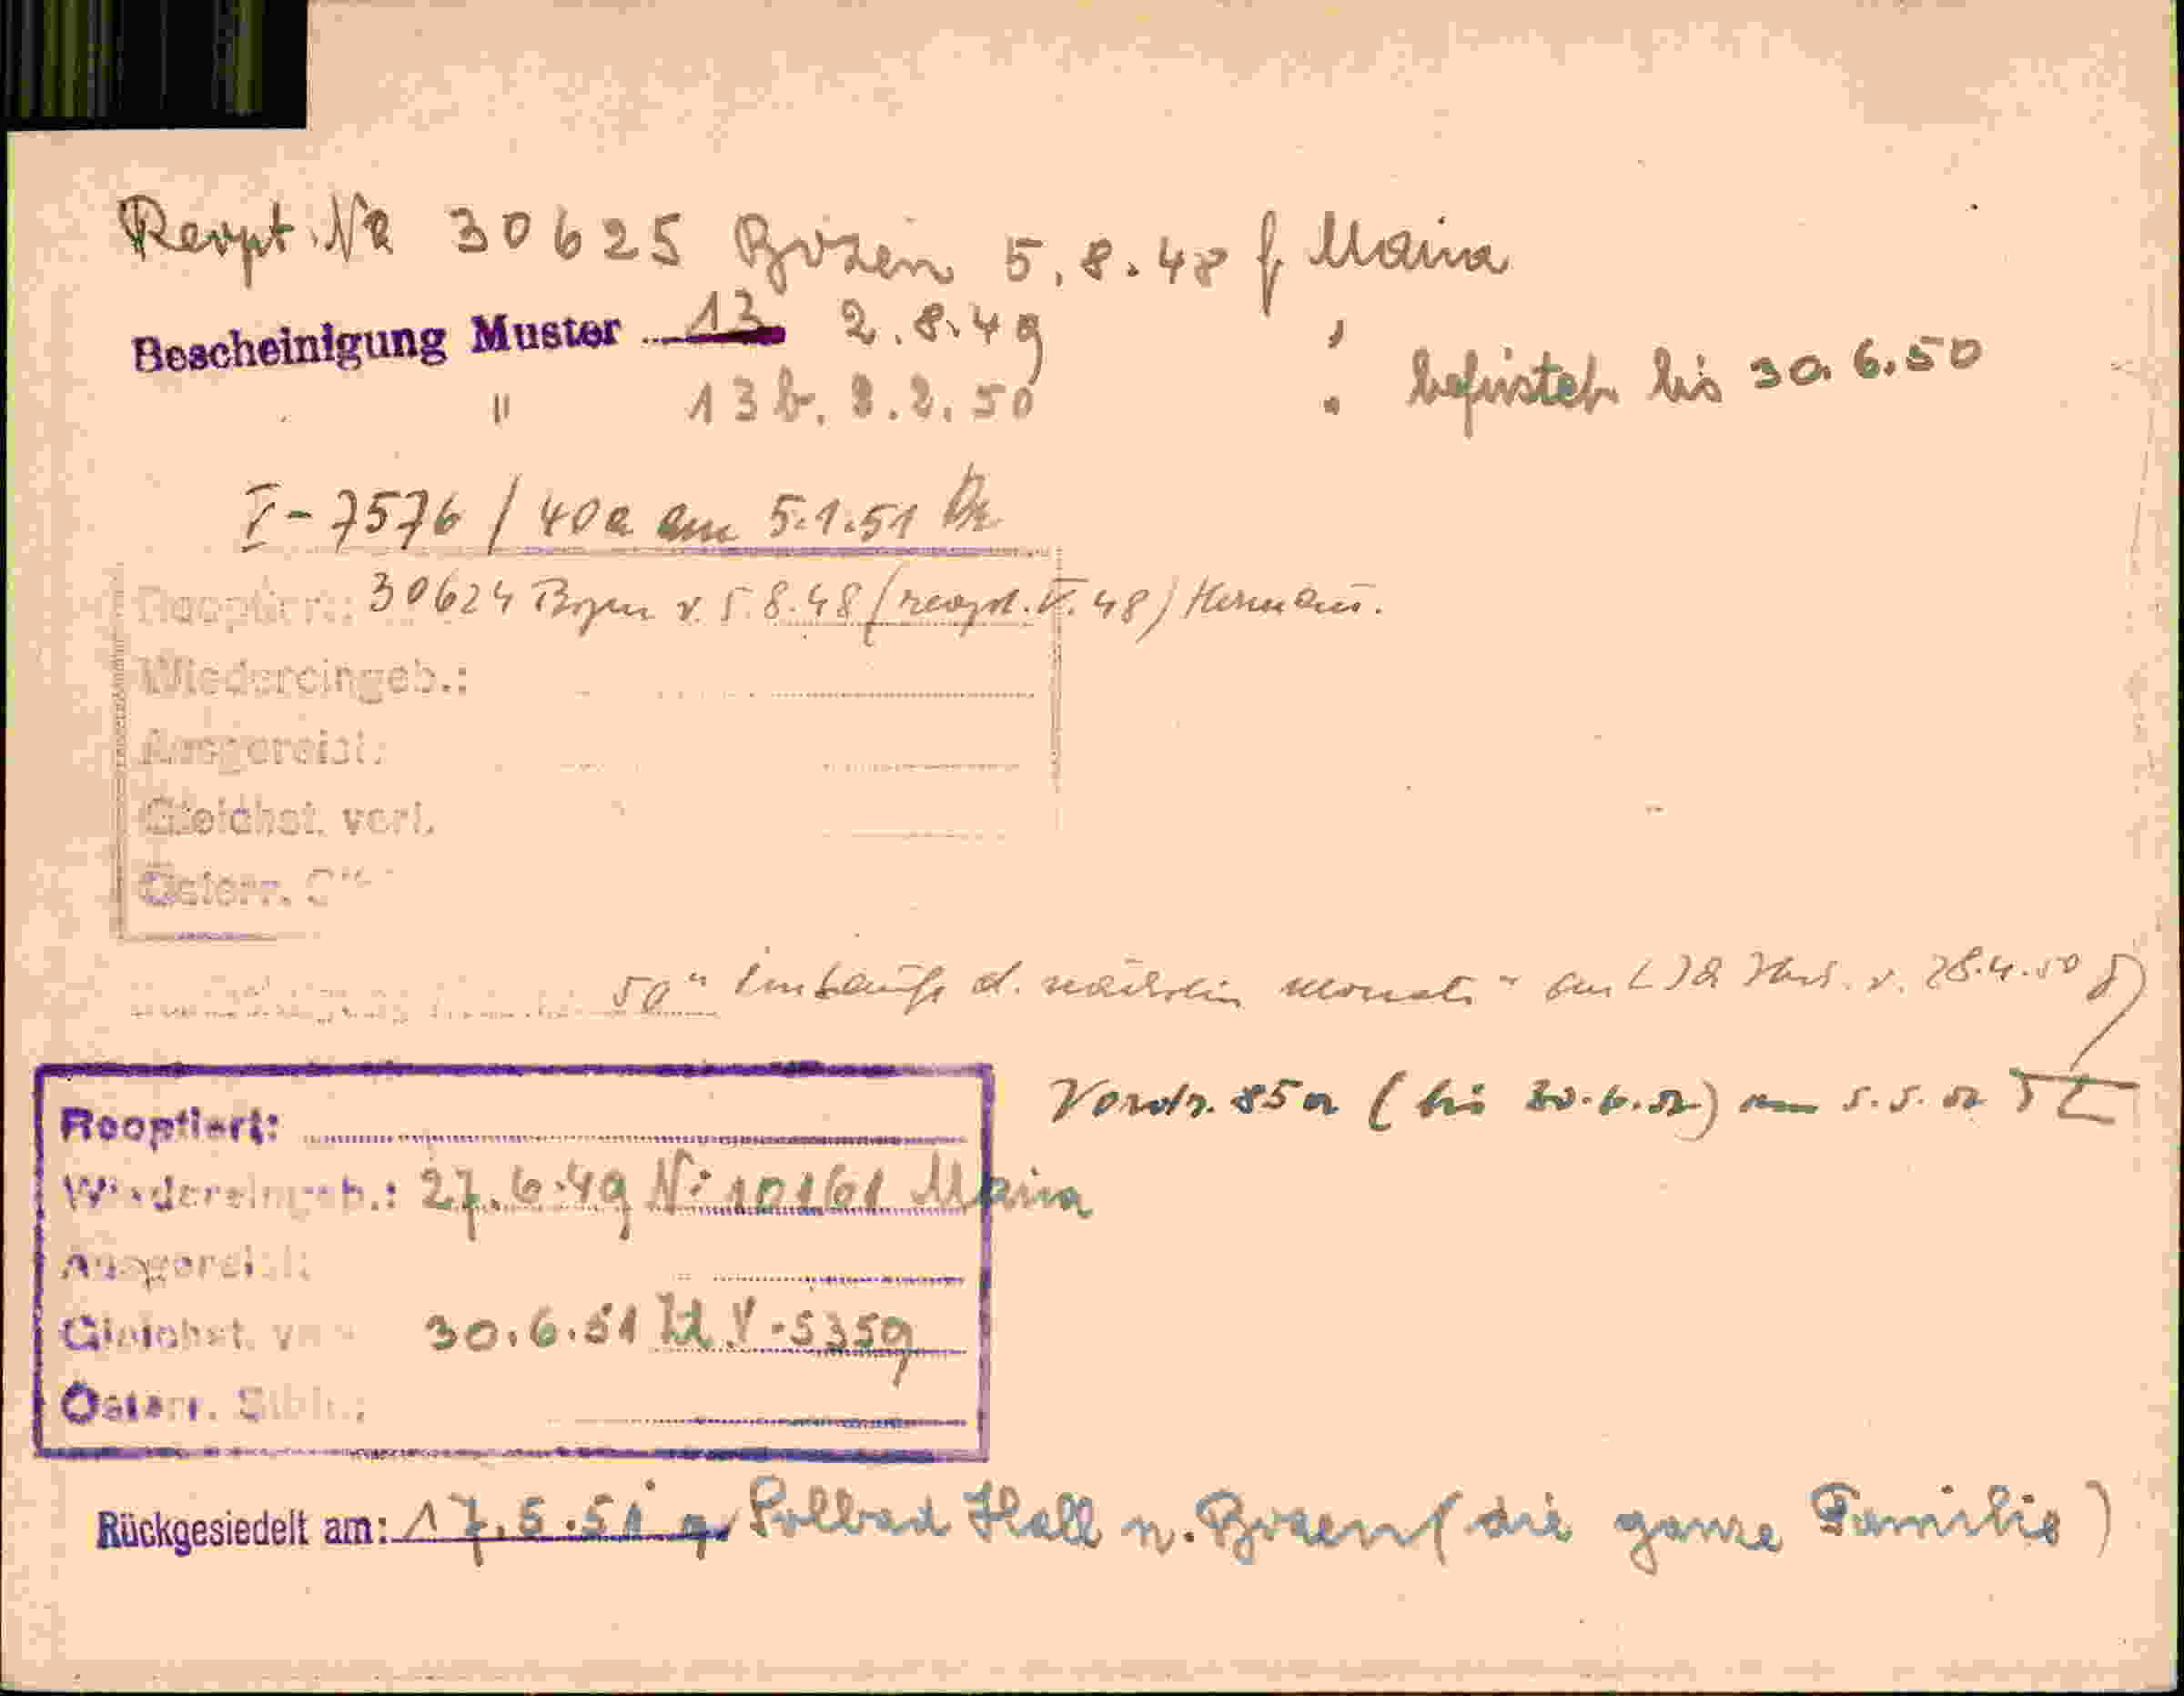 Reopt. No 30625 Bozen 5.8.48 f. Maria
Bescheinigung Muster 13 2.8.49 "
" 13b. 8.2.50 " befristet bis 30.6.50
V-7576 / 40a am 5.1.51
Reoptiert: 30624 Bozen v. 5.8.48 (reopt. V. 48) Hermann.
Wiedereingeb.:
Ausgereist:
Gleichst. verl.
Österr.
50 " im Laufe d. nächsten Monats " v. 28.4.50
Vordr. 85a (bis 30.6.52) am 5.5.52
Reoptiert:
Wiedereingeb.: 27.6.49 No 10161 Maria
Ausgereist:
Gleichst. ver 30.6.51 V-5359
Österr. Stbh.:
Rückgesiedelt am: 17.5.51 Solbad Hall n. Bozen (die ganze Familie)